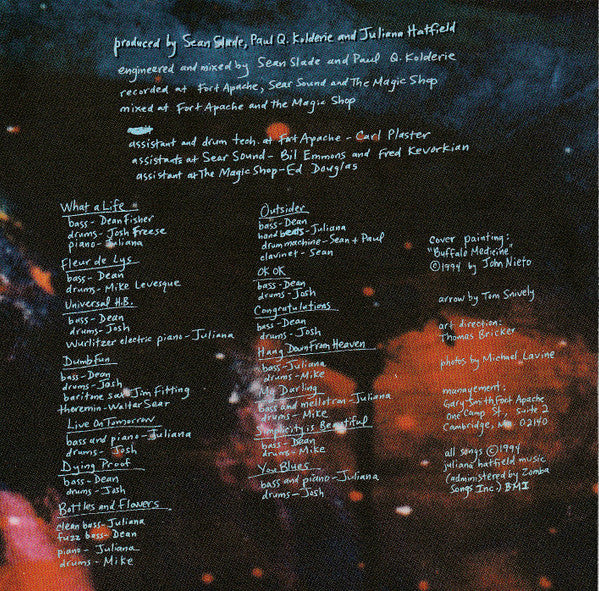 produced by Sean Slade, Paul Q. Kolderie and Juliana Hatfield
engineered and mixed by Sean Slade and Paul Q. Kolderie
recorded at Fort Apache, Sear Sound and The Magic Shop
mixed at Fort Apache and the Magic Shop
assistant and drum tech. at Fort Apache - Carl Plaster
assistants at Sear Sound - Bil Emmons and Fred Kevorkian
assistant at The Magic Shop - Ed Douglas
What a Life
bass - Dean Fisher
drums - Josh Freese
piano - Juliana
Fleur de Lys
bass - Dean
drums - Mike Levesque
Universal H.B.
bass - Dean
drums - Josh
Wurlitzer electric piano - Juliana
Dumbfun
bass - Dean
drums - Josh
baritone sax - Jim Fitting
theremin - Walter Sear
Live On Tomorrow
bass and piano - Juliana
drums - Josh
Dying Proof
bass - Dean
drums - Josh
Bottles and Flowers
clean bass - Juliana
fuzz bass - Dean
piano - Juliana
drums - Mike
Outsider
bass - Dean
hand beats - Juliana
drum machine - Sean + Paul
clavinet - Sean
OK OK
bass - Dean
drums - Josh
Congratulations
bass - Dean
drums - Josh
Hang Down From Heaven
bass - Juliana
drums - Mike
My Darling
bass and mellotron - Juliana
drums - Mike
Simplicity is Beautiful
bass - Dean
drums - Mike
You Blues
bass and piano - Juliana
drums - Josh
cover painting:
"Buffalo Medicine"
©1994 by John Nieto
arrow by Tom Snively
art direction:
Thomas Bricker
photos by Michael Lavine
management:
Gary Smith Fort Apache
One Camp St, Suite 2
Cambridge, MA 02140
all songs ©1994
juliana hatfield music
(administered by Zomba
Songs Inc.) BMI